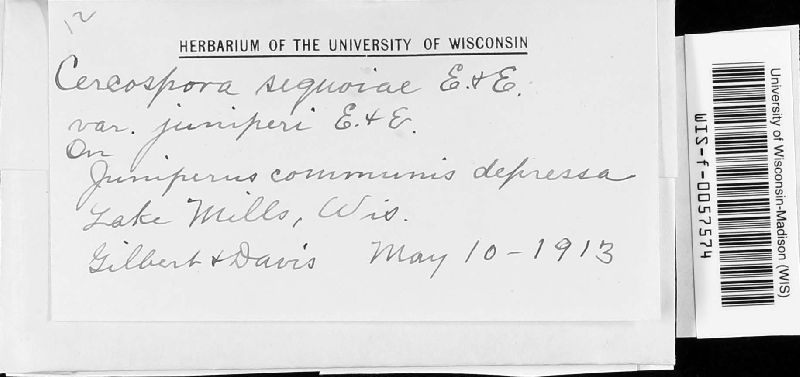 12
HERBARIUM OF THE UNIVERSITY OF WISCONSIN
Cercospora sequoiae E. & E.
var. juniperi E. & E.
On
Juniperus communis depressa
Lake Mills, Wis.
Gilbert & Davis May 10 - 1913
University of Wisconsin-Madison (WIS)
WIS-f-0057574